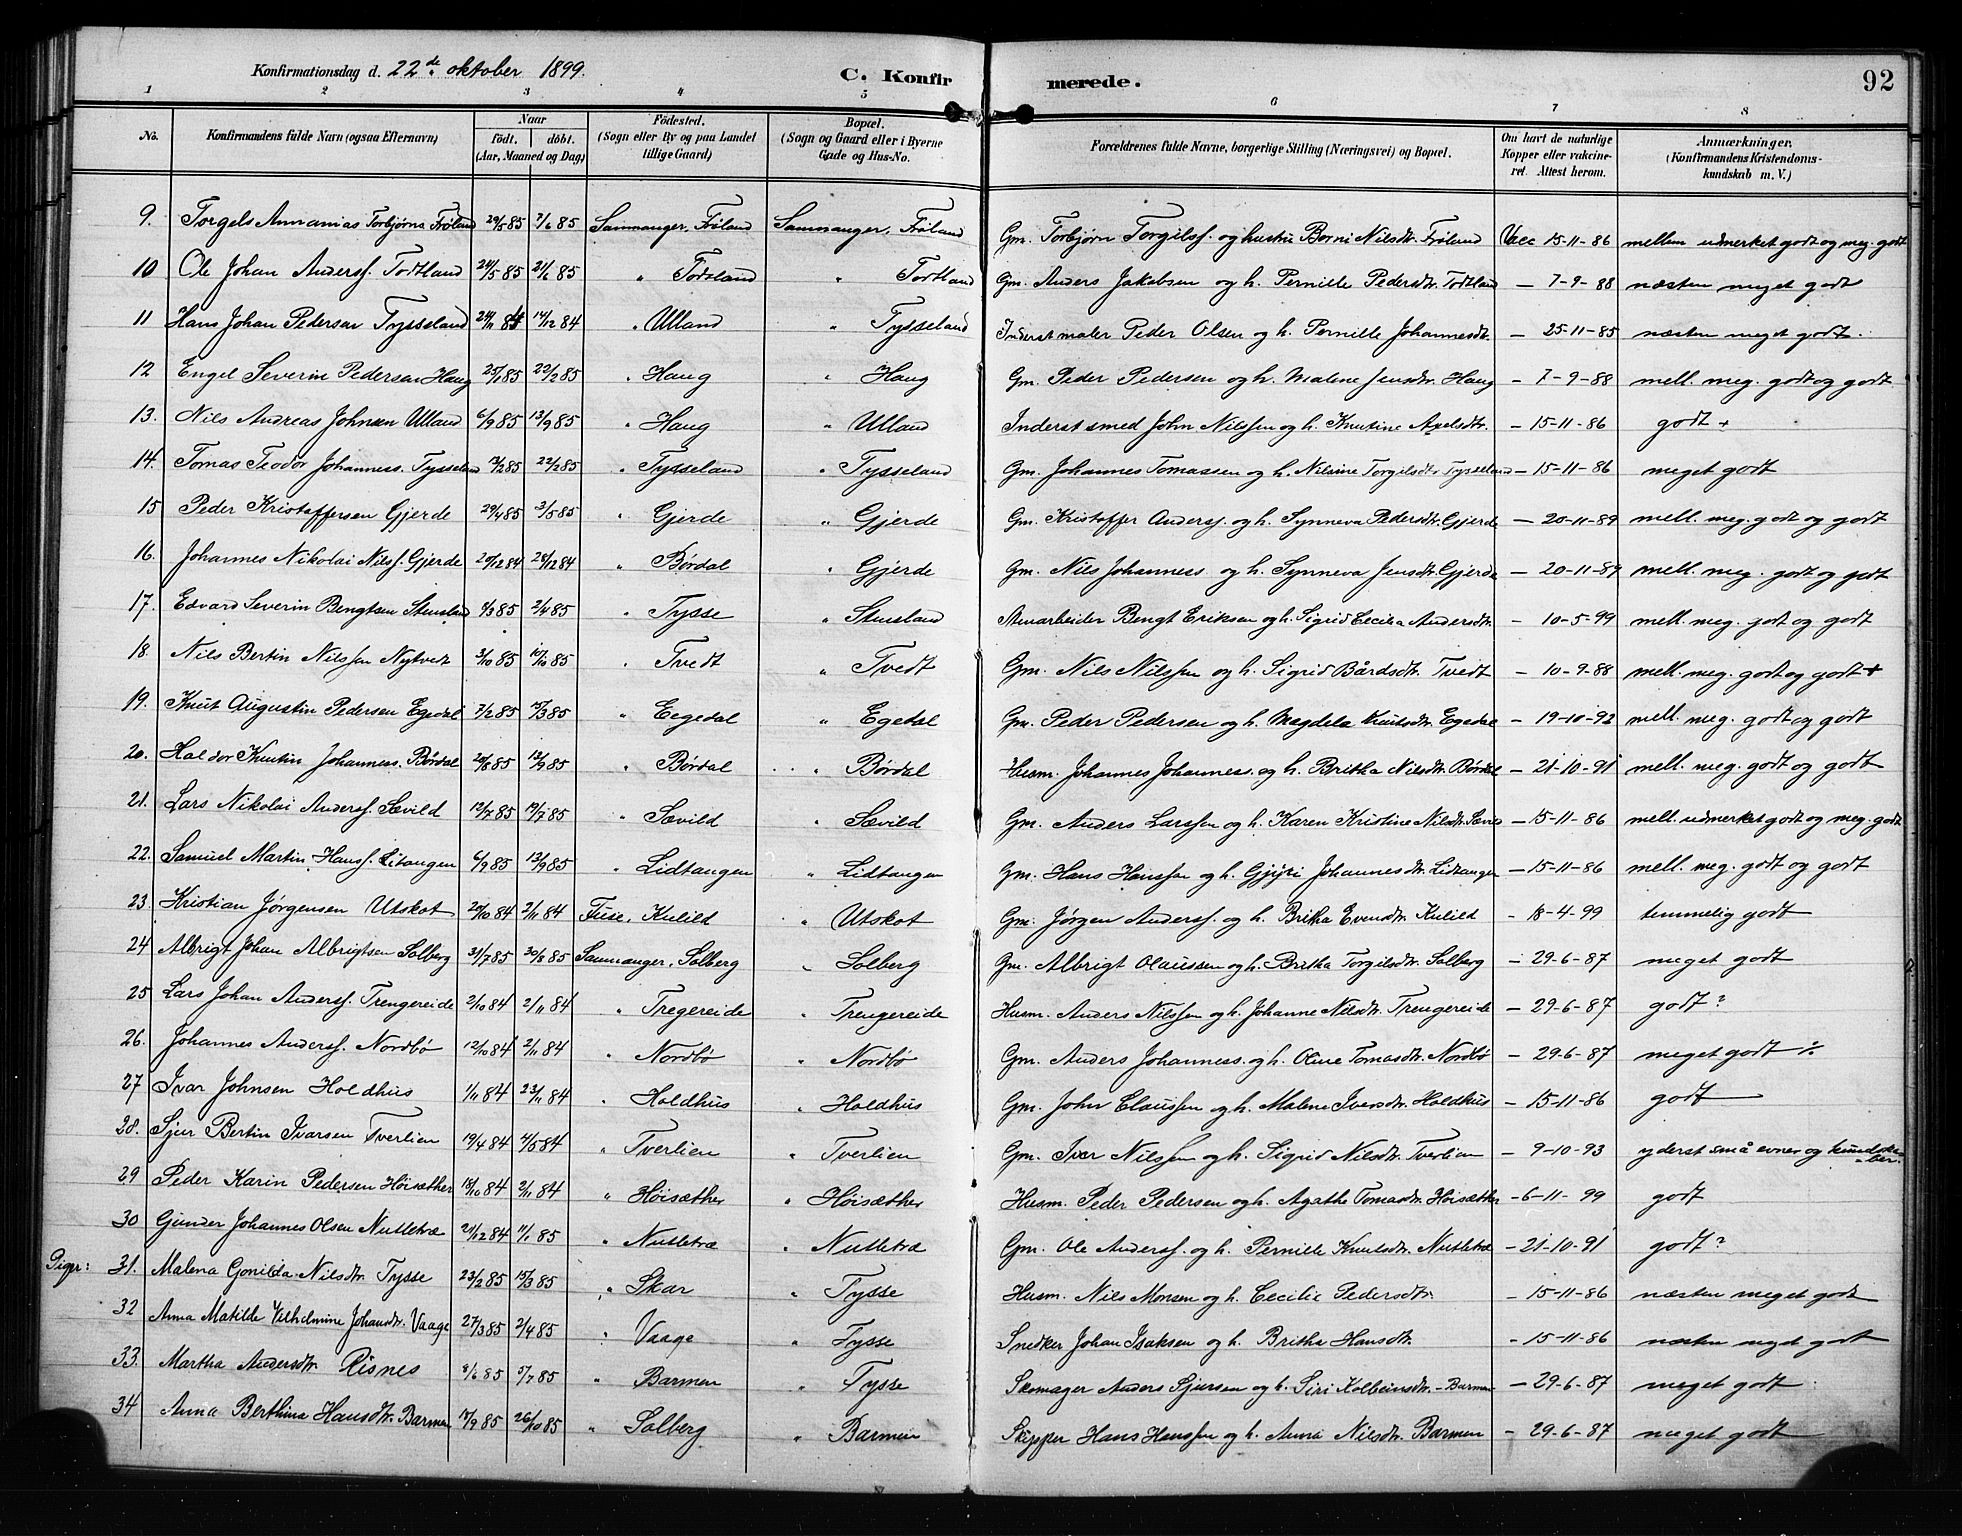 Konfirmationsdag d. 22de oktober 1899. C. Konfirmerede. 92
1 2 3 4 5 6 7 8
No. Konfirmandens fulde Navn (ogsaa Efternavn) Naar født. døbt. (Aar, Maaned og Dag) Fødested. (Sogn eller By og paa Landet tillige Gaard) Bopæl. (Sogn og Gaard eller i Byerne Gade og Hus-No. Forældrenes fulde Navne, borgerlige Stilling (Næringsvei) og Bopæl. Om havt de naturlige Kopper eller vakcineret. Attest herom. Anmærkninger. (Konfirmandens Kristendomskundskab m. V.)
9. Torgels Annanias Torbjørns. Frøland 29/5 85 7/6 85 Sammanger, Frøland Sammanger, Frøland Gm. Torbjørn Torgilss. og hustru Berni Nilsdtr. Frøland Vacc 15-11-86 mellem udmerket godt og meg. godt
10 Ole Johan Anderss. Todtland 24/5 85 21/6 85 " Todtland " Todtland Gm. Anders Jakobsen og h. Pernille Pedersdtr. Todtland — 7-9-88 næsten meget godt
11 Hans Johan Pedersen Tysseland 24/11 84 14/12 84 " Ulland " Tysseland Inderst maler Peder Olsen og h. Pernille Johannesdtr. — 25-11-85 næsten meget godt.
12 Engel Severin Pedersen Haug 25/1 85 22/2 85 " Haug " Haug Gm. Peder Pedersen og h. Malene Jensdtr. Haug — 7-9-88 mell. meg. godt og godt
13. Nils Andreas Johnsen Ulland 6/9 85 13/9 85 " Haug " Ulland Inderst smed John Nilssen og h. Knutine Axelsdtr. — 15-11-86 godt +
14. Tomas Teodor Johanness. Tysseland 22/2 85 " Tysseland " Tysseland Gm. Johannes Tomassen og h. Nilsine Torgilsdtr. Tysseland — 15-11-86 meget godt
15 Peder Kristoffersen Gjerde 29/4 85 3/5 85 " Gjerde " Gjerde Gm. Kristoffer Anderss. og h. Synneva Pedersdtr. Gjerde — 20-11-89 mell. meg. godt og godt
16. Johannes Nikolai Nilss. Gjerde 20/12 84 28/12 84 " Børdal " Gjerde Gm. Nils Johanness. og h. Synneva Jensdtr. Gjerde — 20-11-89 mell. meg. godt og godt
17. Edvard Severin Bengtsen 2/4 85 " Tysse " Bengt Eriksen og h. Sigrid Cecilia Andersdtr. — 10-5-99 mell. meg. godt og godt
18. Nils Bertin Nilssen Nytvedt 3/10 85 10/10 85 " Tvedt " Tvedt Gm. Nils Nilssen og h. Sigrid Bårdsdtr. Tvedt — 10-9-88 mell. meg. godt og godt +
19. Knut Augustin Pedersen Egedal 7/2 85 15/3 85 " Eegedal " Egedal Gm. Peder Pedersen og h. Magdela Knutsdtr. Egedal — 19-10-92 mell. meg. godt og godt
20. Haldor Knutin Johanness. Børdal 20/8 85 13/9 85 " Børdal " Børdal Husm. Johannes Johanness. og h. Britha Nilsdtr. Børdal — 21-10-91 mell. meg. godt og godt
21. Lars Nikolai Anderss. Sævild 12/7 85 19/7 85 " Sævild " Sævild Gm. Anders Larssen og h. Karen Kristine Nilsdtr. Sævild — 15-11-86 mell. udmerket godt og meg. godt
22. Samuel Martin Hanss. Litangen 6/9 85 13/9 85 " Lidtangen " Lidtangen Gm. Hans Hanssen og h. Gjyri Johannesdtr. Lidtangen — 15-11-86 mell. meg. godt og godt
23. Kristian Jørgensen Utskot 20/10 84 2/11 84 Fuse, Kulild " Utskot Gm. Jørgen Anderss. og h. Britha Evensdtr. Kulild — 18-4-99 temmelig godt
24 Albrigt Johan Albrigtsen Solberg 31/7 85 30/8 85 Sammanger, Solberg " Solberg Gm. Albrigt Olaussen og h. Britha Torgilsdtr. Solberg — 29-6-87 meget godt
25 Lars Johan Anderss. Trengereide 2/10 84 2/11 84 " Tregereide " Trengereide Husm. Anders Nilssen og h. Johanne Nilsdtr. Trengereide — 29-6-87 godt?
26. Johannes Anderss. Nordbø 12/10 84 2/11 84 " Nordbø " Nordbø Gm. Anders Johanness. og h. Oline Tomasdtr. Nordbø — 29-6-87 meget godt ÷
27 Ivar Johnsen Holdhus 1/11 84 23/11 84 " Holdhus " Holdhus Gm. John Claussen og h. Malene Iversdtr. Holdhus — 15-11-86 godt
28. Sjur Bertin Ivarsen Tverlien 19/4 84 4/5 84 " Tverlien " Tverlien Gm. Ivar Nilssen og h. Sigrid Nilsdtr. Tverlien — 9-10-93 yderst små evner og kundskaber.
29 Peder Karin Pedersen Høisæther 18/10 84 2/11 84 " Høisæther " Høisæther Husm. Peder Pedersen og h. Agathe Tomasdtr. Høisæther — 6-11-99 godt
30 Gunder Johannes Olsen Nutletræ 21/12 84 1/1 85 " Nutletræ " Nutletræ Gm. Ole Anderss. og h. Pernille Knutsdtr. Nutletræ — 21-10-91 godt?
Piger: 31. Malena Gonilda Nilsdtr. Tysse 23/2 85 15/3 85 " Skar " Tysse Husm. Nils Monsen og h. Cecilie Pedersdtr. — 15-11-86 næsten meget godt
32 Anna Matilde Vilhelmine Johansdtr. Vaage 27/3 85 2/4 85 " Vaage " Tysse Snedker Johan Isaksen og h. Britha Hansdtr. — 15-11-86 næsten meget godt
33. Martha Andersdtr. Risnes 8/6 85 5/7 85 " Barmen " Tysse Skomager Anders Sjursen og h. Siri Kolbeinsdtr. - Barmen — 29-6-87 meget godt
34 Anna Berthina Hansdtr. Barmen 17/9 85 26/10 85 " Solberg " Barmen Skipper Hans Hanssen og h. Anna Nilsdtr. Barmen — 29-6-87 meget godt